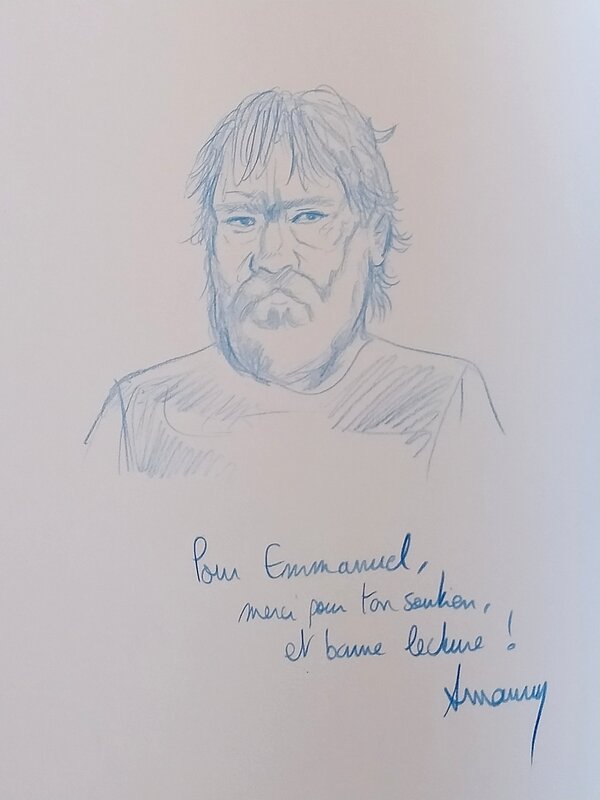 Pour Emmanuel,
merci pour ton soutien,
et bonne lecture !
Amaury